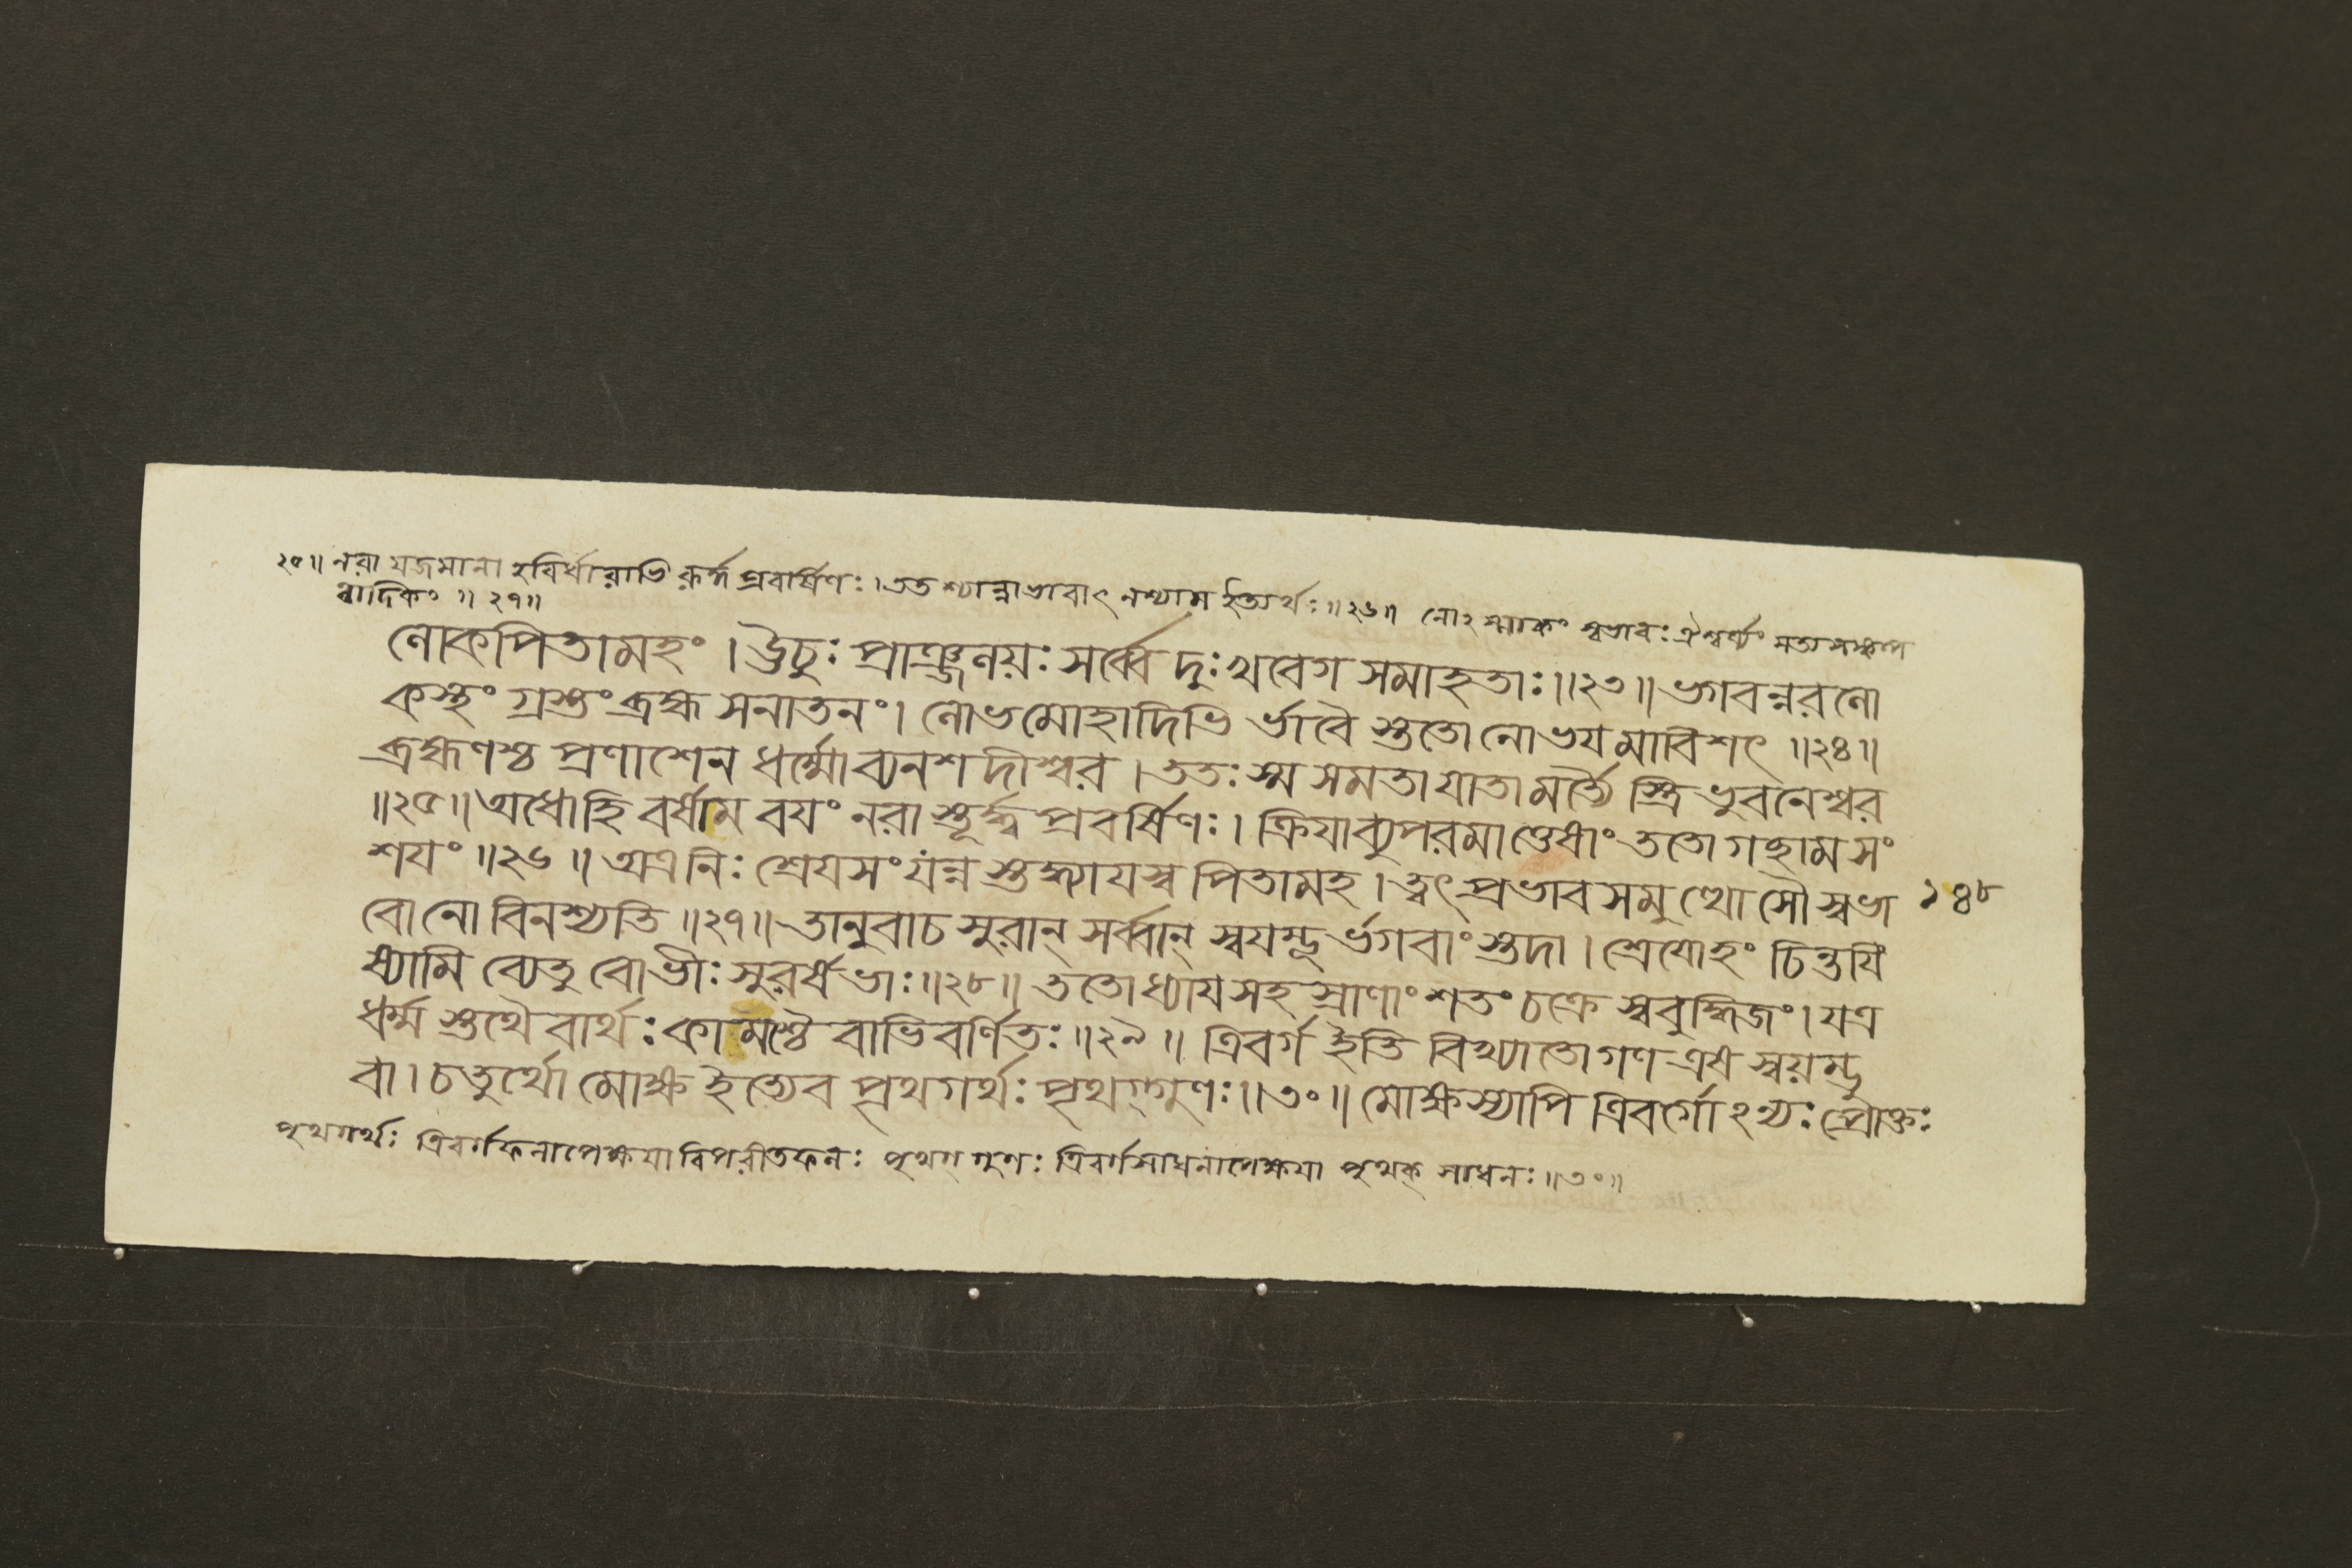 ২৫॥ নরা যজমানা হবির্ধারাভি রূর্দ্ধ প্রবর্ষিণঃ। তত শ্চান্নাভাবাৎ নশ্যাম ইত্যর্থঃ॥২৬॥ নোঽস্মাকং স্বভাবঃ ঐশ্বর্য্যং সত্যসঙ্কল্প
ত্বাদিকং ॥ ২৭॥
লোকপিতামহং । ঊচুঃ প্রাঞ্জলয়ঃ সর্ব্বে দুঃখবেগ সমাহতাঃ॥২৩॥ ভগবন্নরলো
কস্থং গ্রস্তং ব্রহ্ম সনাতনং। লোভমোহাদিভি র্ভাবৈ স্ততো নোভযমাবিশৎ ॥২৪॥
ব্রহ্মণশ্চ প্রণাশেন ধর্ম্মোব্যনশদীশ্বর। ততঃ স্ম সমতাযাতা মর্ত্ত্যৈ স্ত্রিভুবনেশ্বর
॥২৫॥ অধোহি বর্ষাম বযং নরা স্তূর্দ্ধ্ব প্রবর্ষিণঃ। ক্রিযাব্যুপরমাত্তেষাং ততো গচ্ছাম সং
শযং ॥২৬॥ অত্র নিঃ শ্রেযসং যন্ন স্তদ্ধ্যাযস্ব পিতামহ। ত্বৎপ্রভাব সমুত্থো সৌ স্বভা ১৪৮
বো নো বিনশ্যতি ॥২৭॥ তানুবাচ সুরান্ সর্ব্বান্ স্বযম্ভূ র্ভগবাংস্তদা। শ্রেযোহং চিন্তযি
ষ্যামি ব্যেতু বোভীঃ সুরর্ষভাঃ॥২৮॥ ততোধ্যাযসহ স্রাণাং শতং চক্রে স্ববুদ্ধিজং। যত্র
ধর্ম্ম স্তথৈবার্থঃ কামশ্চৈ বাভিবর্ণিতঃ॥২৯॥ ত্রিবর্গ ইতি বিখ্যাতো গণ এষ স্বয়ম্ভু
বা। চতুর্থো মোক্ষ ইত্যেব পৃথগর্থঃ পৃথগ্গুণঃ॥৩০॥ মোক্ষস্যাপি ত্রিবর্গোঽন্যঃ প্রোক্তঃ
পৃথগর্থঃ ত্রিবর্গফলাপেক্ষযা বিপরীতফলঃ পৃথগ্ গুণঃ ত্রিবর্গসাধনাপেক্ষযা পৃথক্ সাধনঃ॥৩০॥